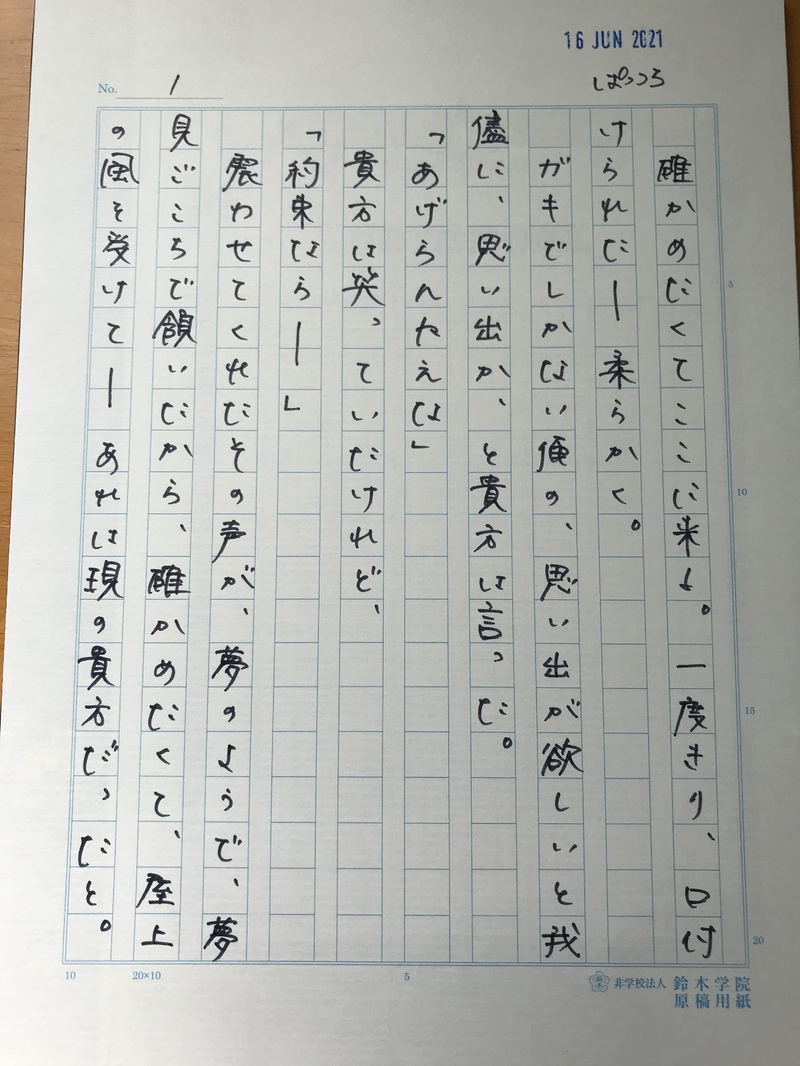 16 JUN 2021
ぱっつろ
No. 1
確かめたくてここに来た。一度きり、口付
けられた―柔らかく。
ガキでしかない俺の、思い出が欲しいと我
儘に、思い出か、と貴方は言った。
「あげらんねえな」
貴方は笑っていたけれど、
「約束なら―」
震わせてくれたその声が、夢のようで、夢
見ごこちで頷いたから、確かめたくて、屋上
の風を受けて―あれは現の貴方だったと。
5
10
15
20
10
20×10
5
非学校法人 鈴木学院
原稿用紙